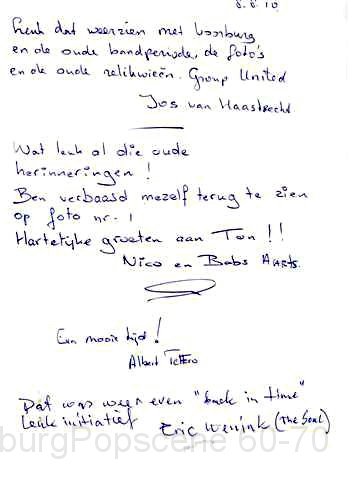 8.8.10
Leuk dat weerzien met Voorburg
en de oude bandperiode, de foto's
en de oude relikwieën. Group United
Jos van Haastrecht
Wat leuk al die oude
herinneringen!
Ben verbaasd mezelf terug te zien
op foto nr. 1
Hartelijke groeten aan Ton!!
Nico en Babs Aarts.
Een mooie tijd!
Albert Tettero
Dat was weer even "back in time"
Leuk initiatief
Eric Wenink (The Soul)
burgPopscene 60-70